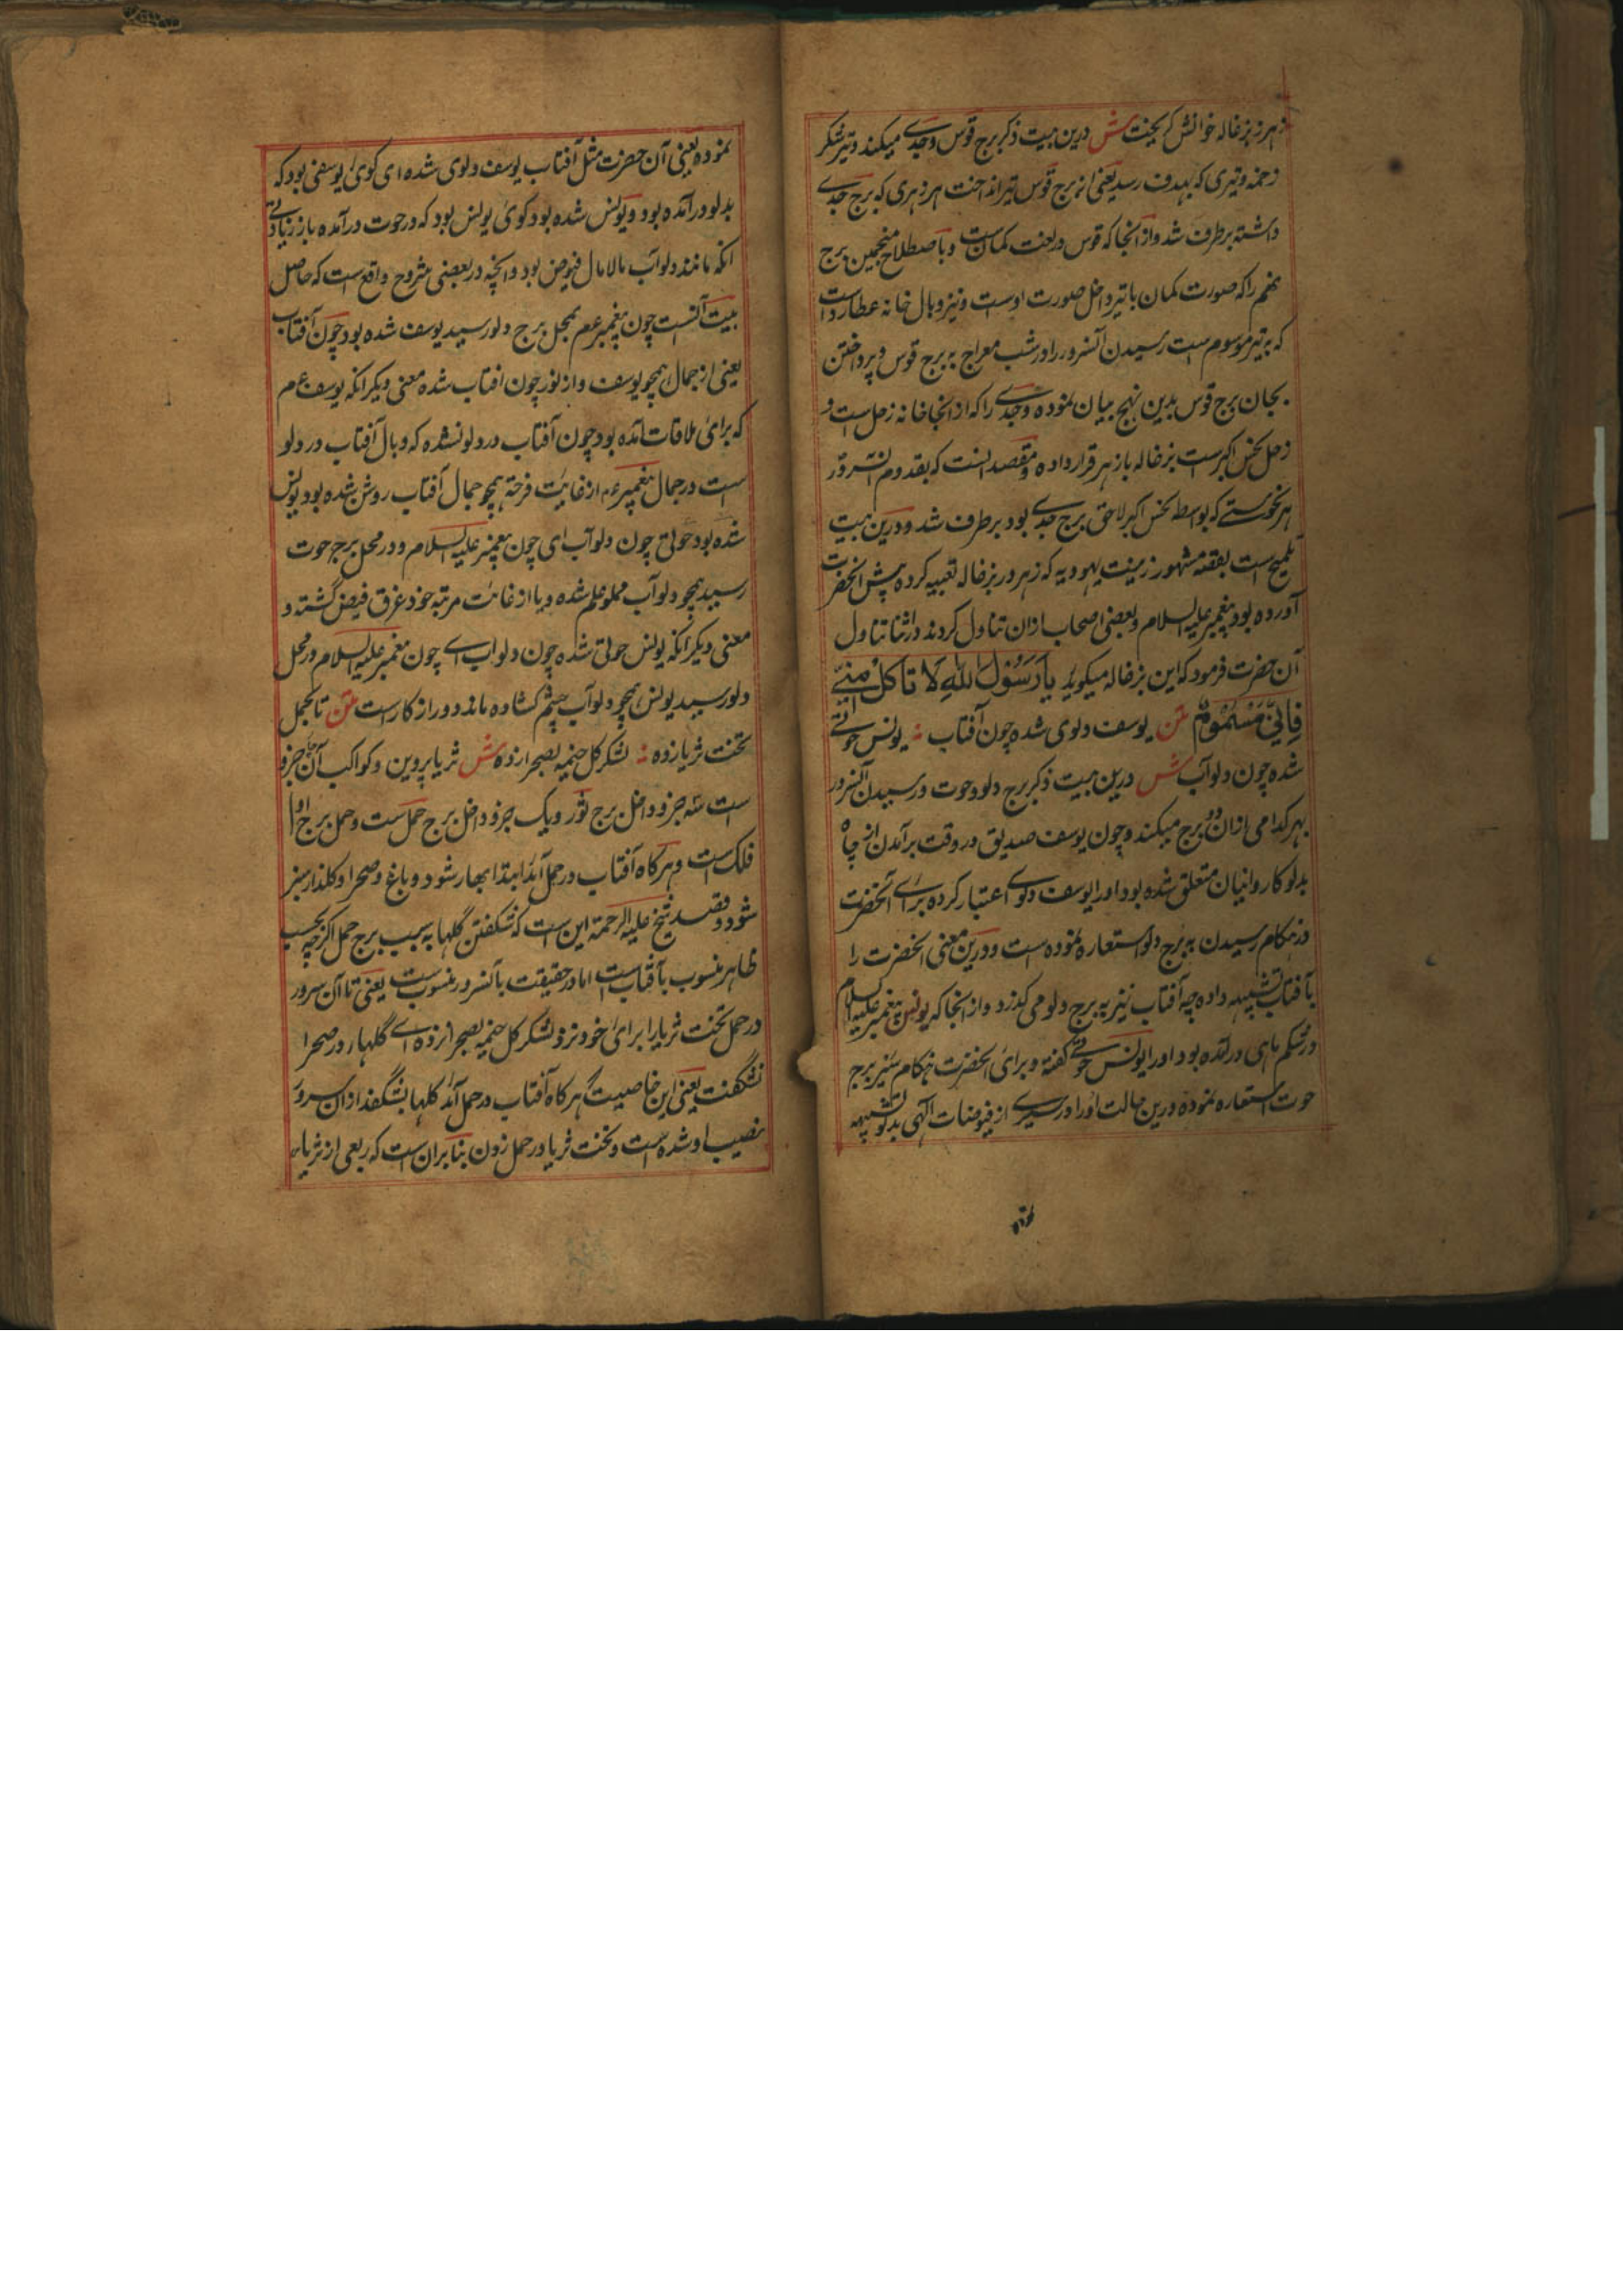 زهر ز بزغاله خوانش گریخت ش درین بیت ذکر برج قوس و جدی میکند و تیر شکر
زخمه و تیری که بهدف رسد یعنی از برج قوس تیر انداخت هر زهری که برج جدی
داشته برطرف شد و از انجا که قوس در لغت کمان ست و باصطلاح منجمین برج
نهم را که صورت کمان با تیر داخل صورت اوست و نیز وبال خانه عطارد است
که به تیر موسوم ست رسیدن آنسرور را در شب معراج به برج قوس و پرداختن
بجان برج قوس بدین نهج بیان نموده و جدی را که از انجا خانه زحل ست و
زحل نحس اکبر ست بزغاله باز هر قرار داده و مقصد آنست که بقدوم آنسرور
هر نحوستے که بواسطه نحس اکبر لاحق برج جدی بود برطرف شد و درین بیت
تلمیح است بقصه مشهور زینت یهودیه که زهر در بزغاله تعبیه کرده پیش آنحضرت
آورده بود پیغمبر علیه السلام و بعضی اصحاب ازان تناول کردند در اثنا تناول
آن حضرت فرمود که این بزغاله میگوید یَا رَسُوْلَ اللهِ لَا تَاکُلْ مِنِّیْ
فَاِنِّیْ مَسْمُوْمٌ متن یوسف دلوی شده چون آفتاب ؞ یونس حوتے
شده چون دلو آب ش درین بیت ذکر برج دلو و حوت و رسیدن آنسرور
بهر کدامی ازان دو برج میکند و چون یوسف صدیق در وقت برآمدن از چاه
بدلو کاروانیان متعلق شده بود او را یوسف دلوی اعتبار کرده برای آنحضرت
در هنگام رسیدن به برج دلو استعاره نموده است و درین معنی آنحضرت را
بآفتاب تشبیه داده چه آفتاب نیز به برج دلو می گذرد و از انجا که یونس پیغمبر علیه السلام
در شکم ماهی در آمده بود او را یونس حوتے گفته و برای آنحضرت هنگام سیر برج
حوت استعاره نموده درین حالت او را در سیری از فیوضات الهی بدلو تشبیه
نمو
نموده یعنی آن حضرت مثل آفتاب یوسف دلوی شده ای گوئ یوسفی بود که
بدلو درآمده بود و یونس شده بود گوئ یونس بود که در حوت در آمده باز زیادتے
آنکه مانند دلو آب مالامال فیوض بود و آنچه در بعضی شروح واقع ست که حاصل
بیت آنست چون پیغمبر عم بمحل برج دلو رسید یوسف شده بود چون آفتاب
یعنی از جمال همچو یوسف و از نور چون آفتاب شده معنی دیگر آنکه یوسف عم
که برای ملاقات آمده بود چون آفتاب در دلو نشده که وبال آفتاب در دلو
ست در جمال پیغمبر عم از غایت فرحة همچو جمال آفتاب روشن شده بود یونس
شده بود حوتی چون دلو آب ای چون پیغمبر علیه السلام در محل برج حوت
رسید همچو دلو آب مملو علم شده و یا از غایت مرتبه خود غرق فیض گشته و
معنی دیگر آنکه یونس حوتی شده چون دلو آب اے چون پیغمبر علیه السلام در محل
دلو رسید یونس همچو دلو آب چشم کشاده ماند دور از کار ست متن تا بحمل
تخت ثریا زده ؞ لشکر گل خیمه بصحرا زده ش ثریا پروین و کواکب آن چهار جزو
است سه جزو داخل برج ثور و یک جزو داخل برج حمل ست و حمل برج اول
فلک ست و هر گاه آفتاب در حمل آید ابتدا بهار شود و باغ و صحرا و گلذار سبز
شود و مقصد شیخ علیه الرحمة این ست که شگفتن گلها به سبب برج حمل اگرچه بحسب
ظاهر منسوب بآفتاب است اما در حقیقت بآنسرور منسوب ست یعنی تا آن سرور
در حمل تخت ثریا را برای خود نزد لشکر گل خیمه بصحرا نزد اے گلها در صحرا
نشگفت یعنی این خاصیت که هر گاه آفتاب در حمل آید گلها بشگفد ازان سرور
نصیب او شده ست و تخت ثریا در حمل زدن بنا بران ست که ربعی از ثریا